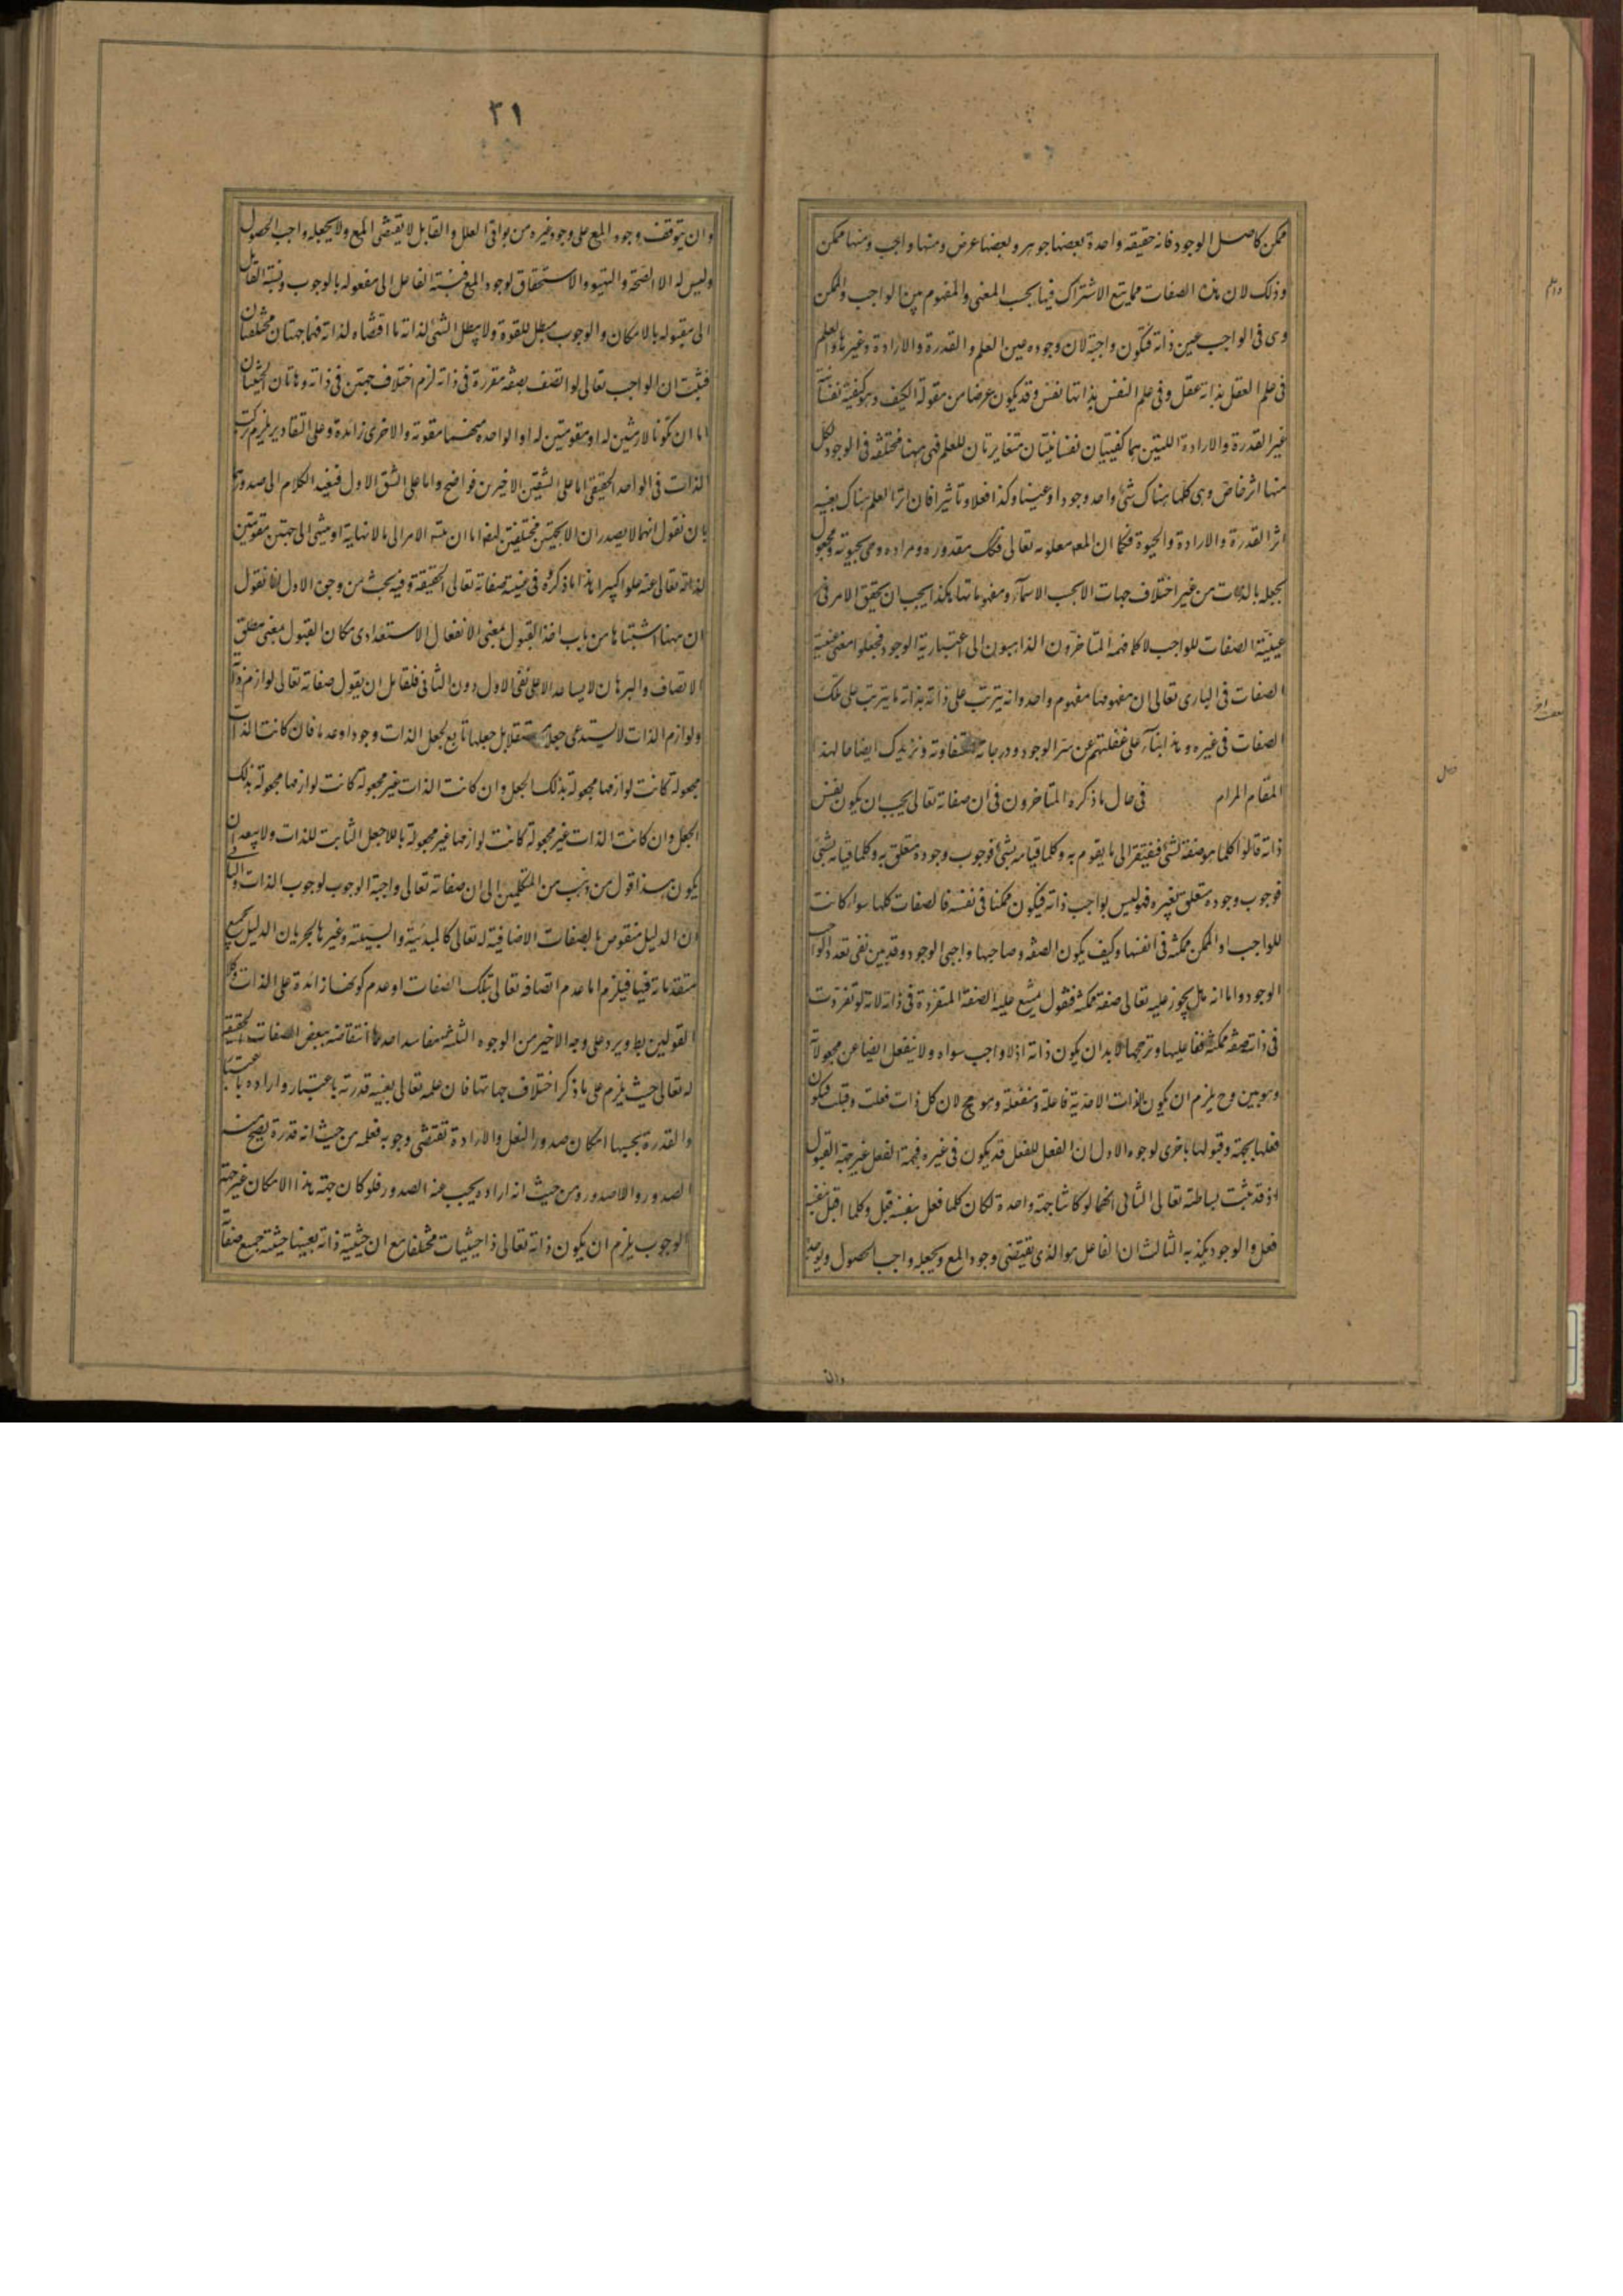 ممكن كاصل الوجود فانه حقيقه واحدة بعضها جوهر وبعضها عرض ومنها واجب ومنها ممكن
وذلك لان هذه الصفات مما يتبع الاشتراك فيها بحسب المعنى والمفهوم بين الواجب والممكن
وهى فى الواجب عين ذاته فتكون واجبة لان وجوده عين العلم والقدرة والارادة وغيرها والعلم
فى علم العقل بذاته عقل وفى علم النفس بذاتها نفس وقد يكون عرضا من مقولة الكيف وهو كيفية نفسانية
غير القدرة والارادة اللتين هما كفيتيان نفسانيتان متغايرتان للعلم فهى ههنا مختلفه فى الوجود لكل
منها اثر خاص وهى كلها هناك شئ واحد وجودا وعينا وكذا فعلا وتاثيرا فان اثر العلم هناك بعينه
اثر القدرة والارادة والحيوة فكما ان المعه معلومه تعالى فكك مقدوره ومراده وحى بحيوته ومجعول
بجعله بالذات من غير اختلاف جهات الا بحسب الاسمآء ومفهوماتها هكذا يجب ان يحقق الامر فى
عينية الصفات للواجب لا كما فهمه المتاخرون الذاهبون الى اعتبارية الوجود فجعلوا معنى عينية
الصفات فى البارى تعالى ان مفهومها مفهوم واحد وانه يترتب على ذاته بذاته ما يترتب على تلك
الصفات فى غيره وهذا بنآء على غفلتهم عن سر الوجود ودرجاته المتفاوته ونزيدك ايضاحا لهذا
المقام المرام فى حال ما ذكره المتاخرون فى ان صفاته تعالى يجب ان يكون نفس
ذاته قالوا كلما هو صفة لشئ فيفتقر الى ما يقوم به وكلما قيامه بشئ فوجوب وجوده متعلق به وكلما قيامه بشئ
فوجوب وجوده متعلق بغيره فهو ليس بواجب ذاته فيكون ممكنا فى نفسه فالصفات كلها سواء كانت
للواجب او الممكن ممكنة فى انفسها وكيف يكون الصفه وصاحبها واجبى الوجود وقد بين نفى تعدد الواجب
الوجود واما انه هل يجوز عليه تعالى صفة ممكنة فنقول يمتنع عليه الصفة المتقررة فى ذاته لانه لو تقررت
فى ذاته صفة ممكنة ففاعليها ومرجحها لابد ان يكون ذاته اذ لا واجب سواه ولا ينفعل ايضا عن مجعولاته
وهو بين وح يلزم ان يكون الذات الاحدية فاعلة ومنفعلة وهو مح لان كل ذات فعلت وقبلت فيكون
فعلها بجهة وقبولها باخرى لوجوه الاول ان الفعل للفعل قد يكون فى غيره فجهة الفعل غير جهة القبول
اذ قد ثبت بساطته تعالى الثانى انهما لو كانتا جهة واحدة لكان كلما فعل بنفسه قبل وكلما قبل بنفسه
فعل والوجود يكذبه الثالث ان الفاعل هو الذى يقتضى وجود المع ويجعله واجب الحصول ويوجد
فصل
٣١
وان يتوقف وجود المع على وجود غيره من بواقى العلل والقابل لا يقتضى المع ولا يجعله واجب الحصول
وليس له الا الصحة والتهيؤ والاستحقاق لوجود المع فنسبته الفاعل الى مفعوله بالوجوب ونسبة القابل
الى مقبوله بالامكان والوجوب مبطل للقوة ولا يبطل الشئ لذاته ما اقتضاه لذاته فهما جهتان مختلفتان
فثبت ان الواجب تعالى لو اتصف بصفة متقررة فى ذاته لزم اختلاف جهتين فى ذاته وهاتان الحيثيتان
اما ان تكونا لازمتين له او مقومتين له او الواحدة منهما مقومة والاخرى زائدة وعلى التقادير يلزم تركب
الذات فى الواحد الحقيقى اما على الشقين الاخيرين فواضح واما على الشق الاول فنعيد الكلام الى صدورهما
بان نقول انهما لا يصدران الا بجهتين مختلفتين ايضا اما ان يتسه الامر الى ما لا نهاية او ينتهى الى جهتين مقومتين
لذاته تعالى عنه علوا كبيرا هذا ما ذكروه فى عينية صفاته تعالى الحقيقة وفيه بحث من وجوه الاول انا نقول
ان ههنا اشتباها من باب اخذ القبول بمعنى الانفعال الاستعدادى مكان القبول بمعنى مطلق
الاتصاف والبرهان لا يساعد الا على نفى الاول دون الثانى فلقائل ان يقول صفاته تعالى لوازم ذاته
ولوازم الذات لا يستدعى جعلا مستقلا بل جعلها تابع لجعل الذات وجودا وعدما فان كانت الذات
مجعولة كانت لوازمها مجعولة بذلك الجعل وان كانت الذات غير مجعولة كانت لوازمها مجعولة بذلك
الجعل وان كانت الذات غير مجعولة كانت لوازمها غير مجعولة باللاجعل الثابت للذات ولا يبعد ان
يكون هذا قول من ذهب من المتكلمين الى ان صفاته تعالى واجبة الوجوب لوجوب الذات والثانى
ان الدليل منقوض بالصفات الاضافية له تعالى كالمبدئية والسببية وغيرها لجريان الدليل بجميع
مقدماته فيها فيلزم اما عدم اتصافه تعالى بتلك الصفات او عدم كونها زائدة على الذات وكلا
القولين بط ويرد على وجه الاخير من الوجوه الثلثة مفاسد احدها انتقاضه ببعض الصفات الحقيقية
له تعالى حيث يلزم على ما ذكر اختلاف جهاتها فان علمه تعالى بعينه قدرته باعتبار وارادة باعتبار
والقدرة بحسبها امكان صدور الفعل والارادة تقتضى وجوبه فعلمه من حيث انه قدرة يصح منه
الصدور واللاصدور ومن حيث انه ارادة يجب عنه الصدور فلو كان جهة هذا الامكان غير جهة
الوجوب يلزم ان يكون ذاته تعالى ذا حيثيات مختلفة مع ان حيثية ذاته بعينها حيثية جميع صفاته